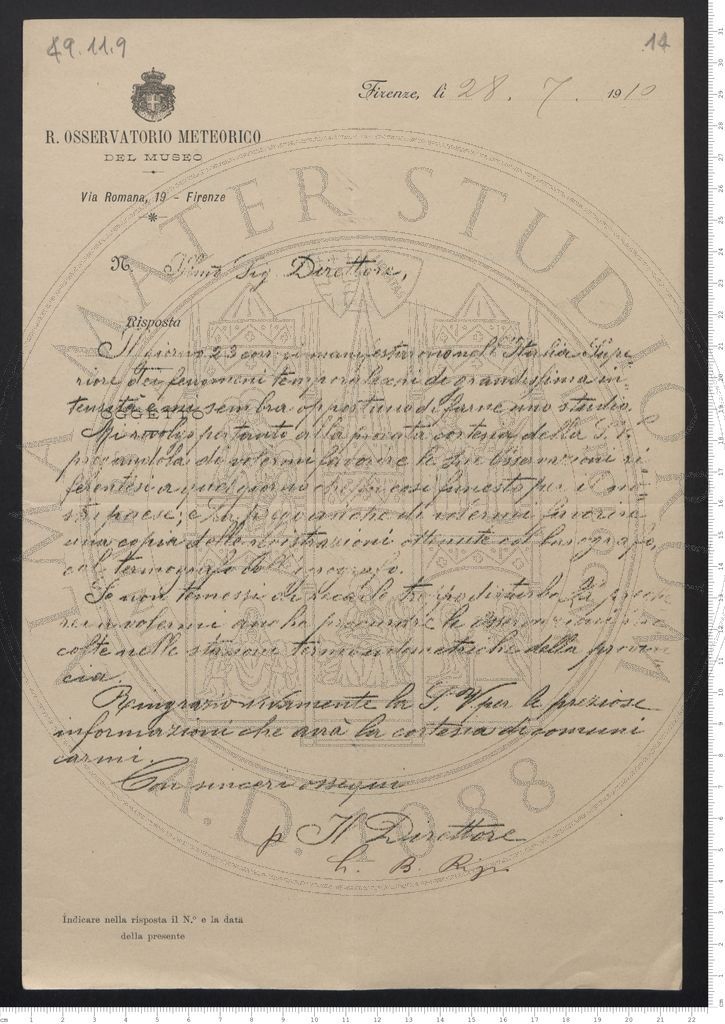 49.11.9
14
Firenze, lì 28. 7. 1910
R. OSSERVATORIO METEORICO
DEL MUSEO
Via Romana, 19 - Firenze
N. Illmo Sig. Direttore,
Risposta
Il giorno 23 corr. si manifestarono nell'Italia Supe-
riore dei fenomeni temporaleschi di grandissima in
tensità e mi sembra opportuno di farne uno studio.
OGGETTO
Mi rivolgo pertanto alla provata cortesia della S. V.
pregandola di volermi favorire le Sue Osservazioni ri
ferentisi a quel giorno che fu così funesto per il no
stro paese; e La prego anche di volermi favorire
una copia delle registrazioni ottenute col barografo,
col termografo coll'igrografo.
Se non temessi di recarle troppo disturbo La preghe
rei a volermi anche procurare le osservazioni rac
colte nelle stazioni termoudometriche della provin
cia.
Ringrazio vivamente la S. V. per le preziose
informazioni che avrà la cortesia di comuni
carmi.
Con sinceri ossequi
p Il Direttore
B.
Indicare nella risposta il N.° e la data
della presente
ALMA MATER STUDIORUM
A.D. 1088
cm 1 2 3 4 5 6 7 8 9 10 11 12 13 14 15 16 17 18 19 20 21 22